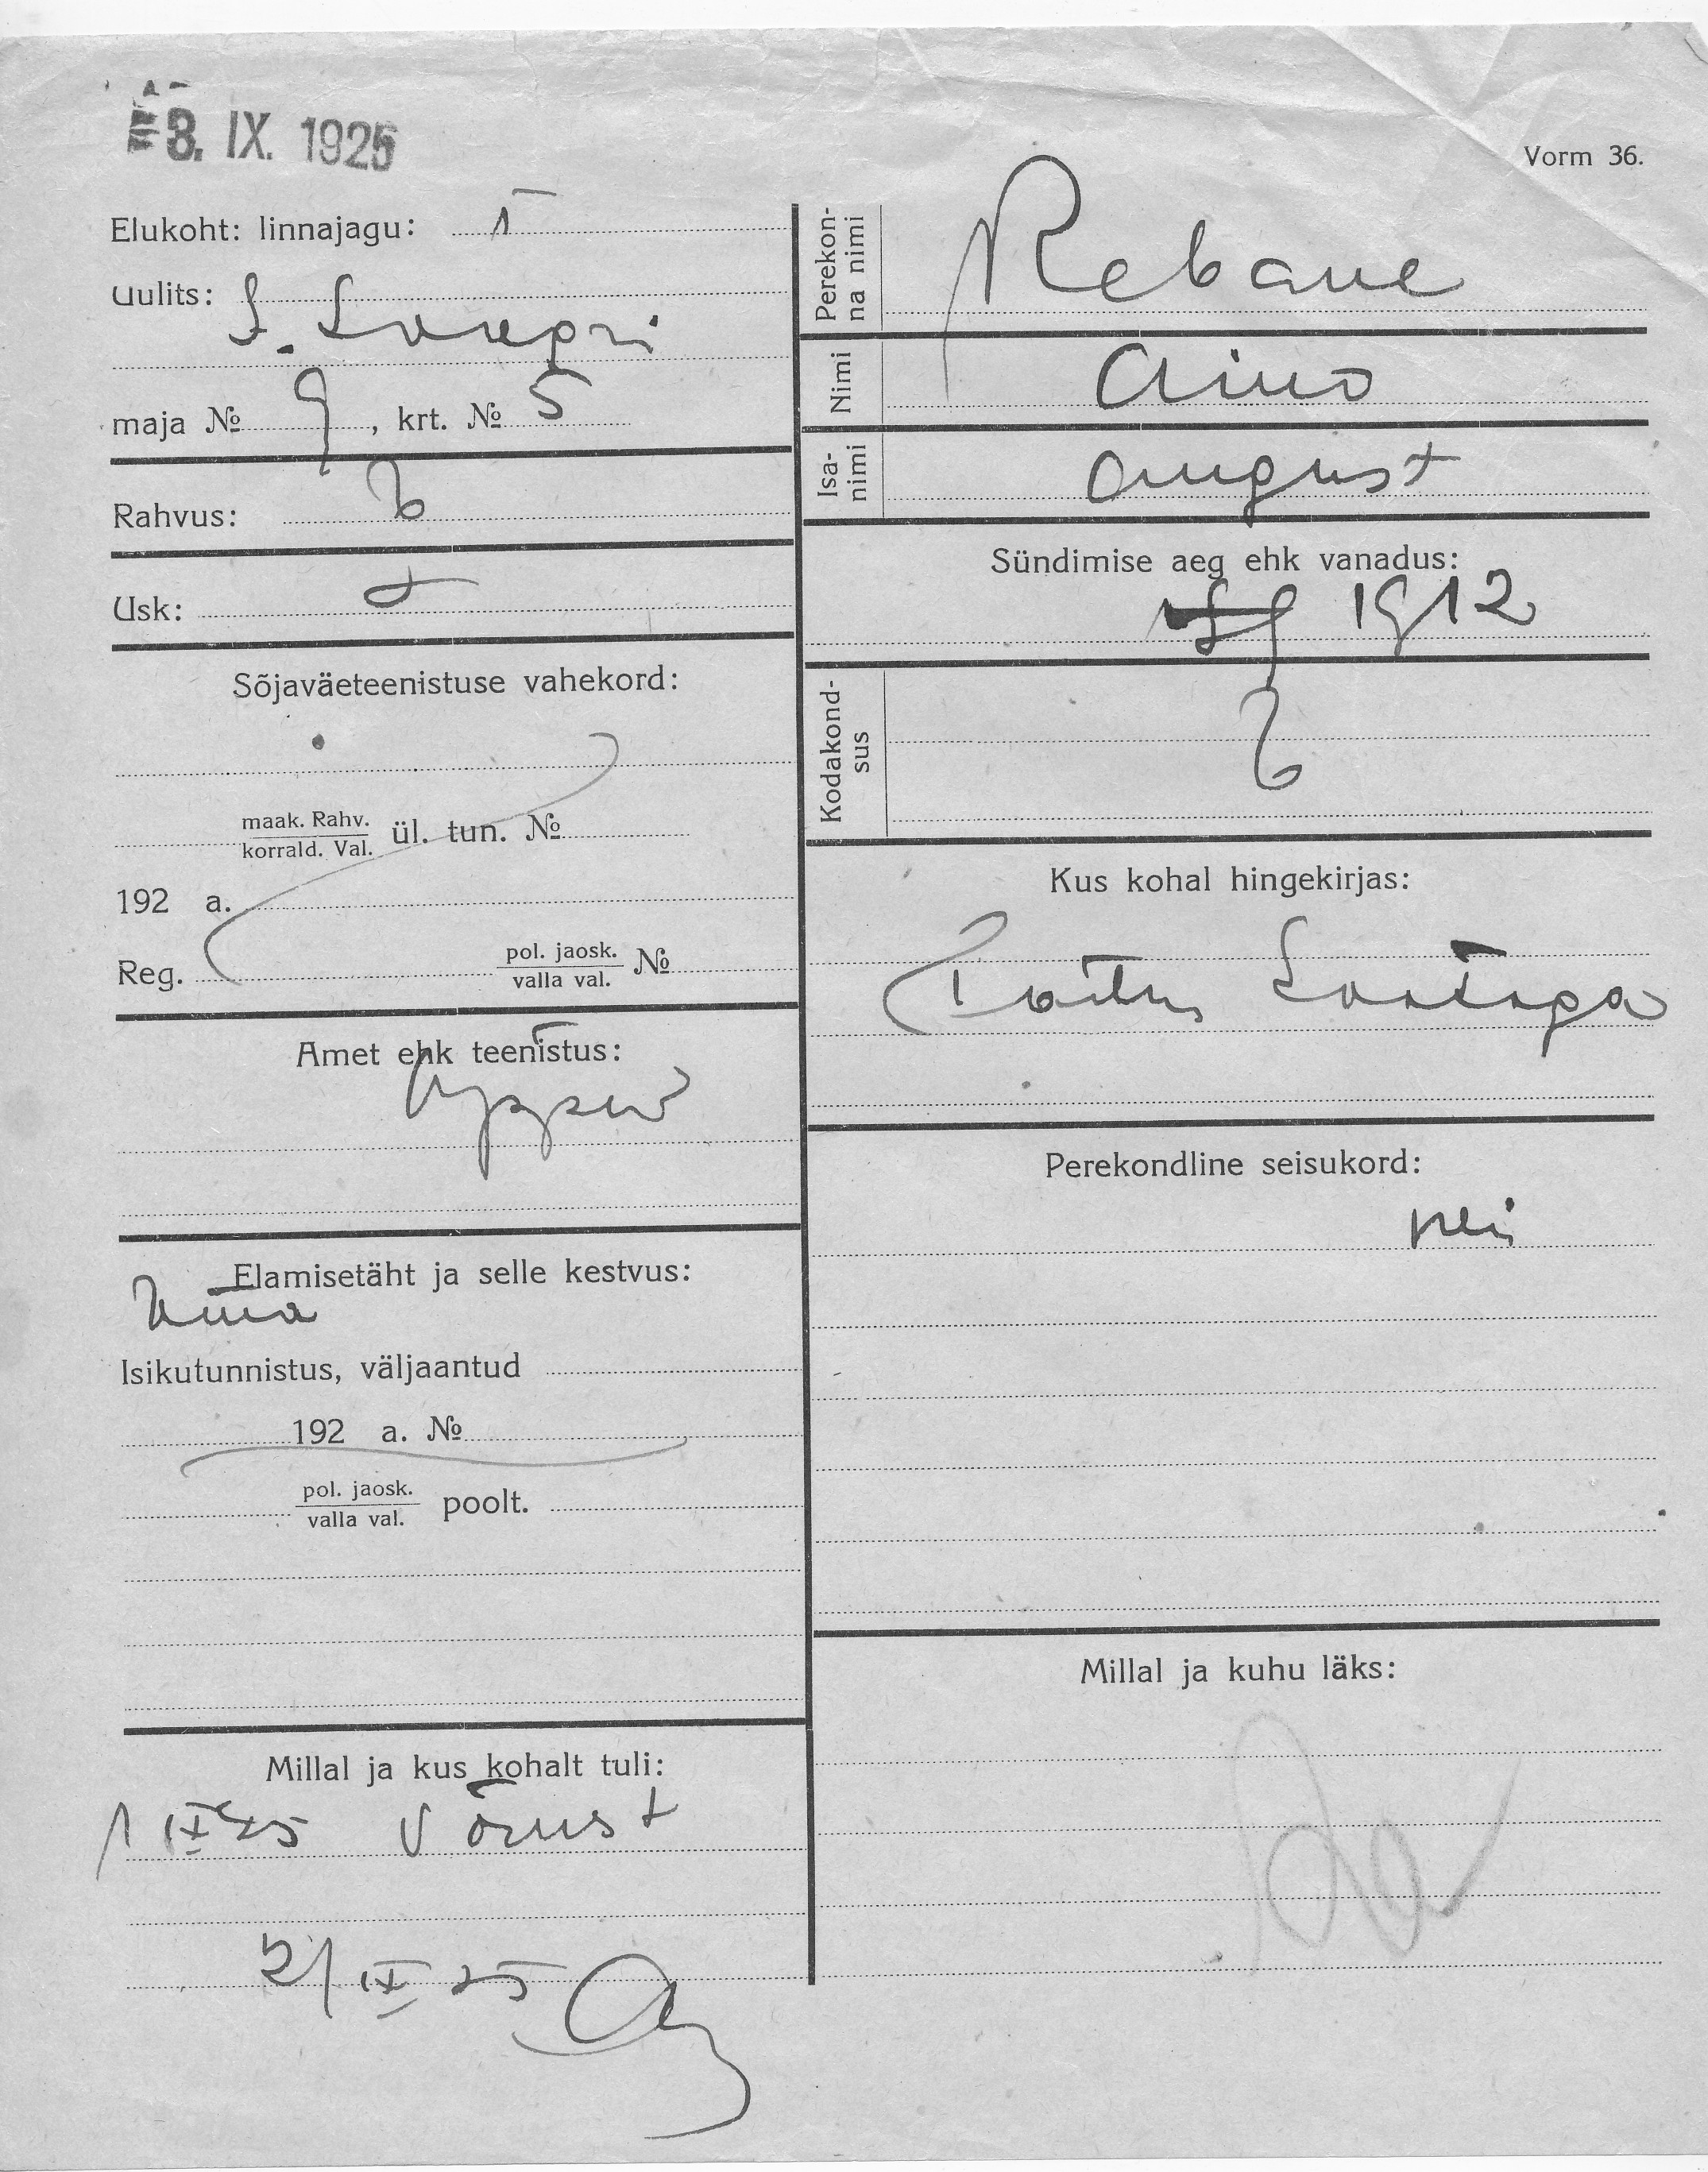 8. IX. 1925
Vorm 36.
Elukoht: linnajagu: I
Uulits:
maja № 9, krt. № 5
Rahvus:
Usk:
Sõjaväeteenistuse vahekord:
maak. Rahv.
korrald. Val. ül. tun. №
192 a.
Reg. pol. jaosk.
valla val. №
Amet ehk teenistus:
Elamisetäht ja selle kestvus:
Isikutunnistus, väljaantud
192 a. №
pol. jaosk.
valla val. poolt.
Millal ja kus kohalt tuli:
1 IX 25 Võrust
2/IX 25
Perekon-
na nimi Rebane
Nimi Aino
Isa-
nimi August
Sündimise aeg ehk vanadus:
1912
Kodakond-
sus
Kus kohal hingekirjas:
Perekondline seisukord:
nei
Millal ja kuhu läks: